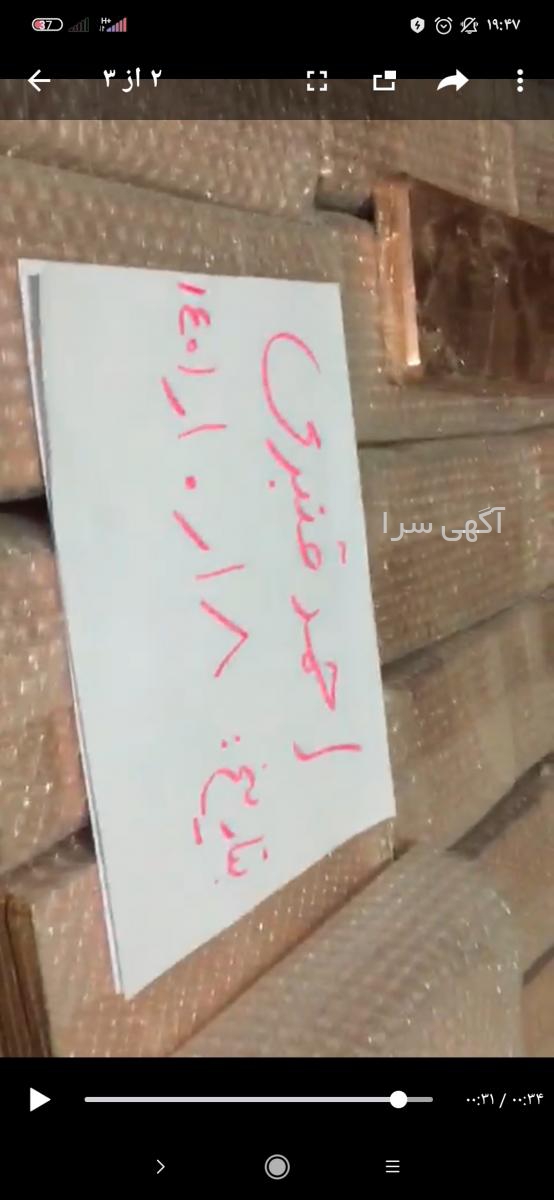 37 H+ ۱۹:۴۷
۲ از ۳
احمد قنبری
تاریخ: ۱٤۰۱/۱۰/۱۸
آگهی سرا
۰۰:۳۱ / ۰۰:۳۴